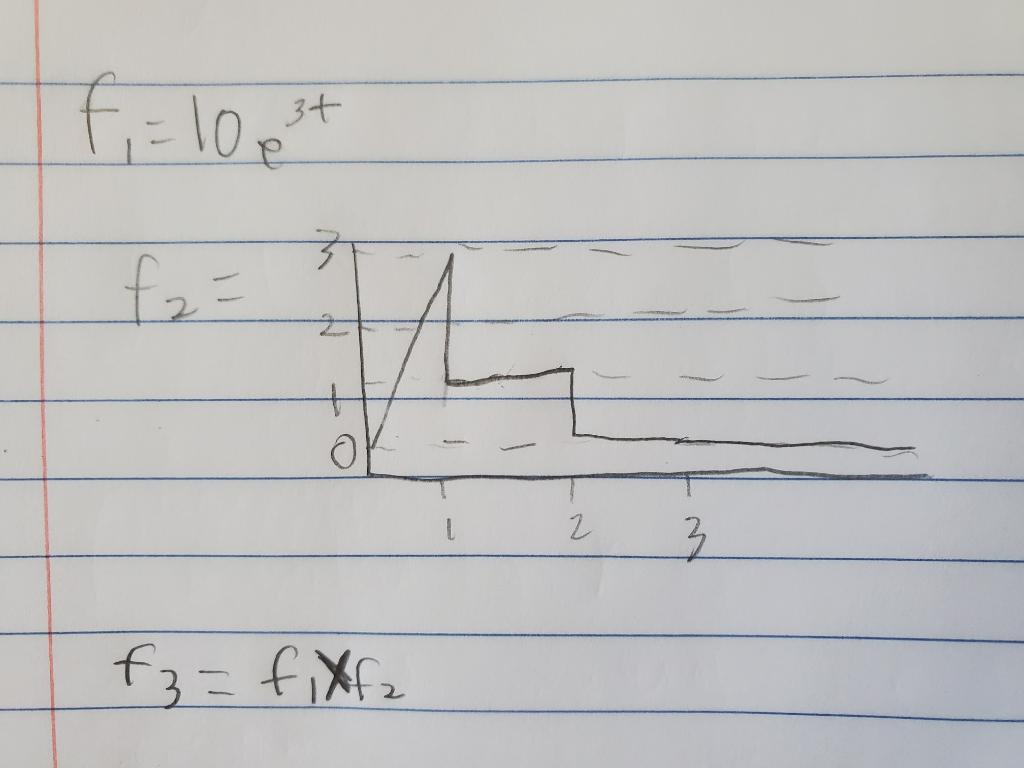 f₁ = 10e³ᵗ
f₂ =
3
2
1
0
1 2 3
f₃ = f₁ X f₂